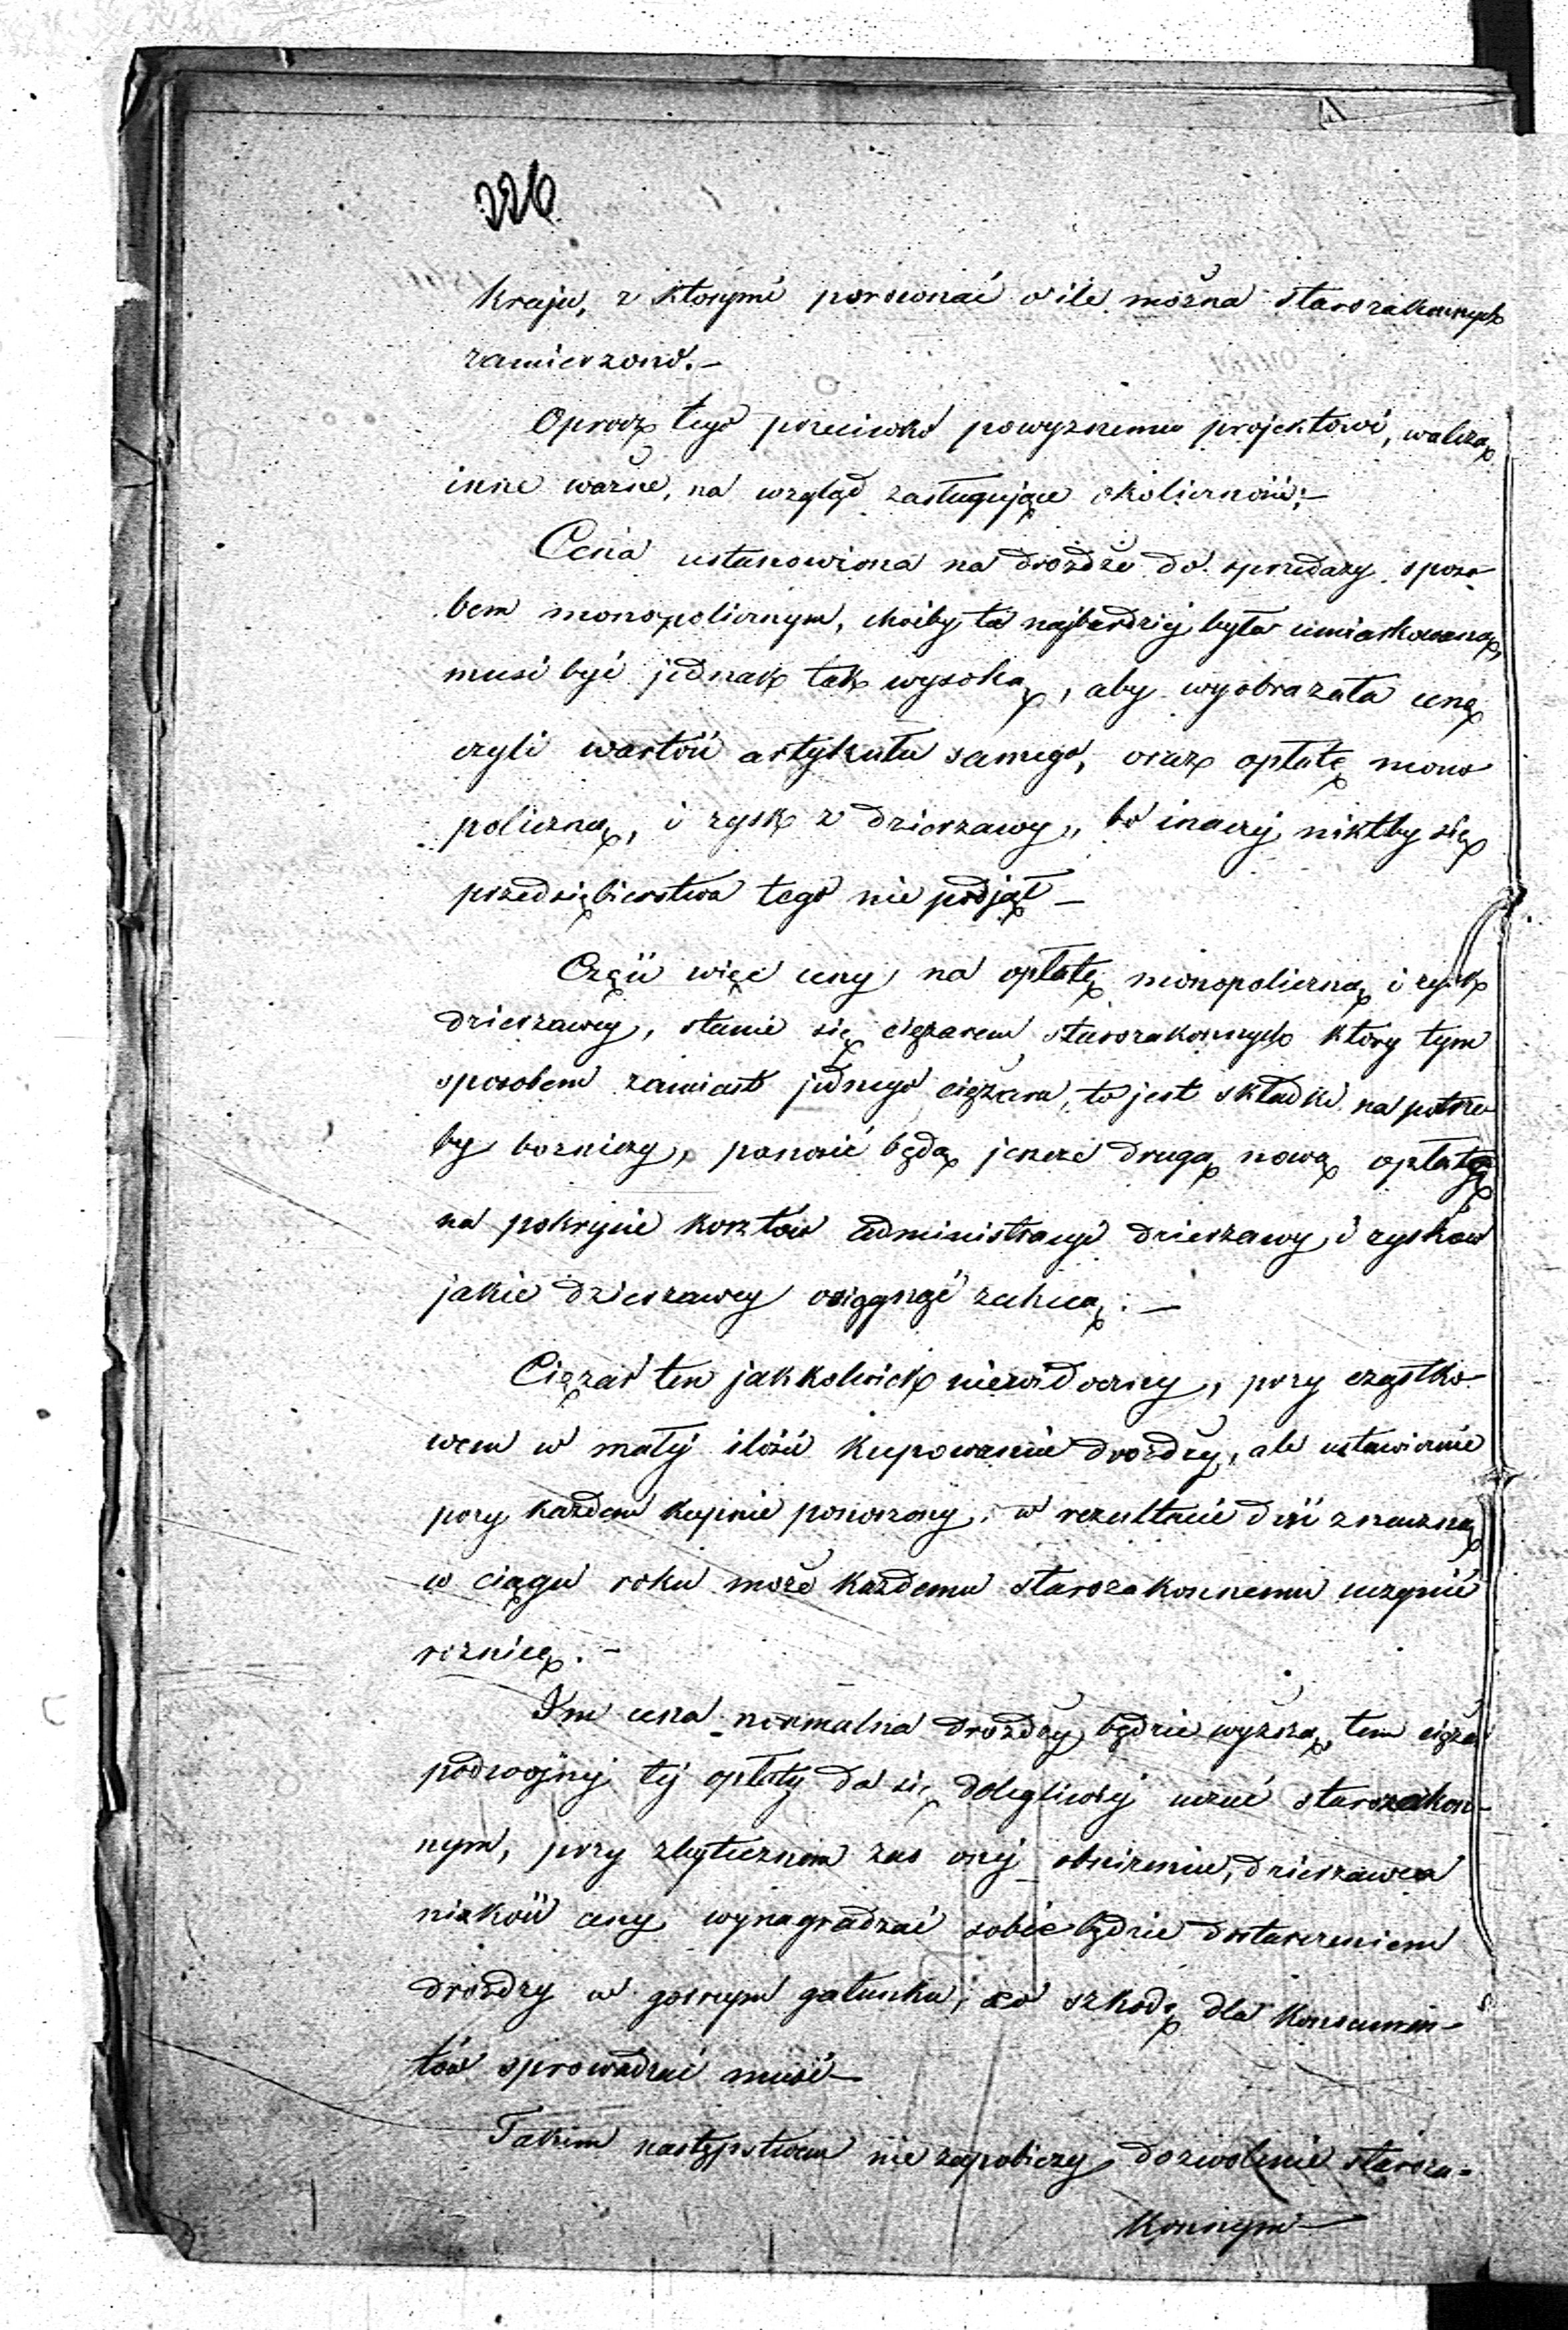 226
kraju, z ktorymi porownać o ile można starozakonnych
zamierzono.—
Oprocz tego przeciwko powyższemu projektowi, walczą
inne ważne, na wzgląd zasługujące okoliczności:—
Cena ustanowiona na drożdże do sprzedaży sposo-
bem monopolicznym, choćby ta najbardziej była umiarkowaną,
musi być jednak tak wysoką, aby wyobrażała cenę
czyli wartość artykułu samego, oraz opłatę mono
policzną, i zysk z dzierzawy, bo inaczej niktby się
przedsiębierstwa tego nie podjął—
Część więc ceny, na opłatę monopoliczną i zysk
dzierzawcy, stanie się ciężarem starozakonnych ktory tym
sposobem zamiast jednego ciężaru, to jest składki na potrze
by boznicy, ponosić będą jeszcze drugą nową opłatę
na pokrycie kosztów administracyi dzierzawy, i zysków
jakie dzierzawcy osiągnąć zechcą.—
Ciężar ten jakkolwiek niewidoczny, przy cząstko-
wem w małej ilości kupowaniu drożdży, ale ustawicznie
przy każdem kupnie ponoszony, w rezultacie dość znaczną
w ciągu roku może każdemu starozakonnemu uczynić
roznicę.—
Im cena normalna drożdży będzie wyższą, tem ciężar
podwojnej tej opłaty da się dolegliwiej uczuć starozakon-
nym, przy zbytecznem zas onej obnizeniu, dzierzawca
niskość ceny wynagradzać sobie będzie dostarczeniem
drożdży w gorszym gatunku, co szkodę dla Konsumen-
tów sprowadzać musi—
Takim następstwom nie zapobieży dozwolenie staroza-
konnym—